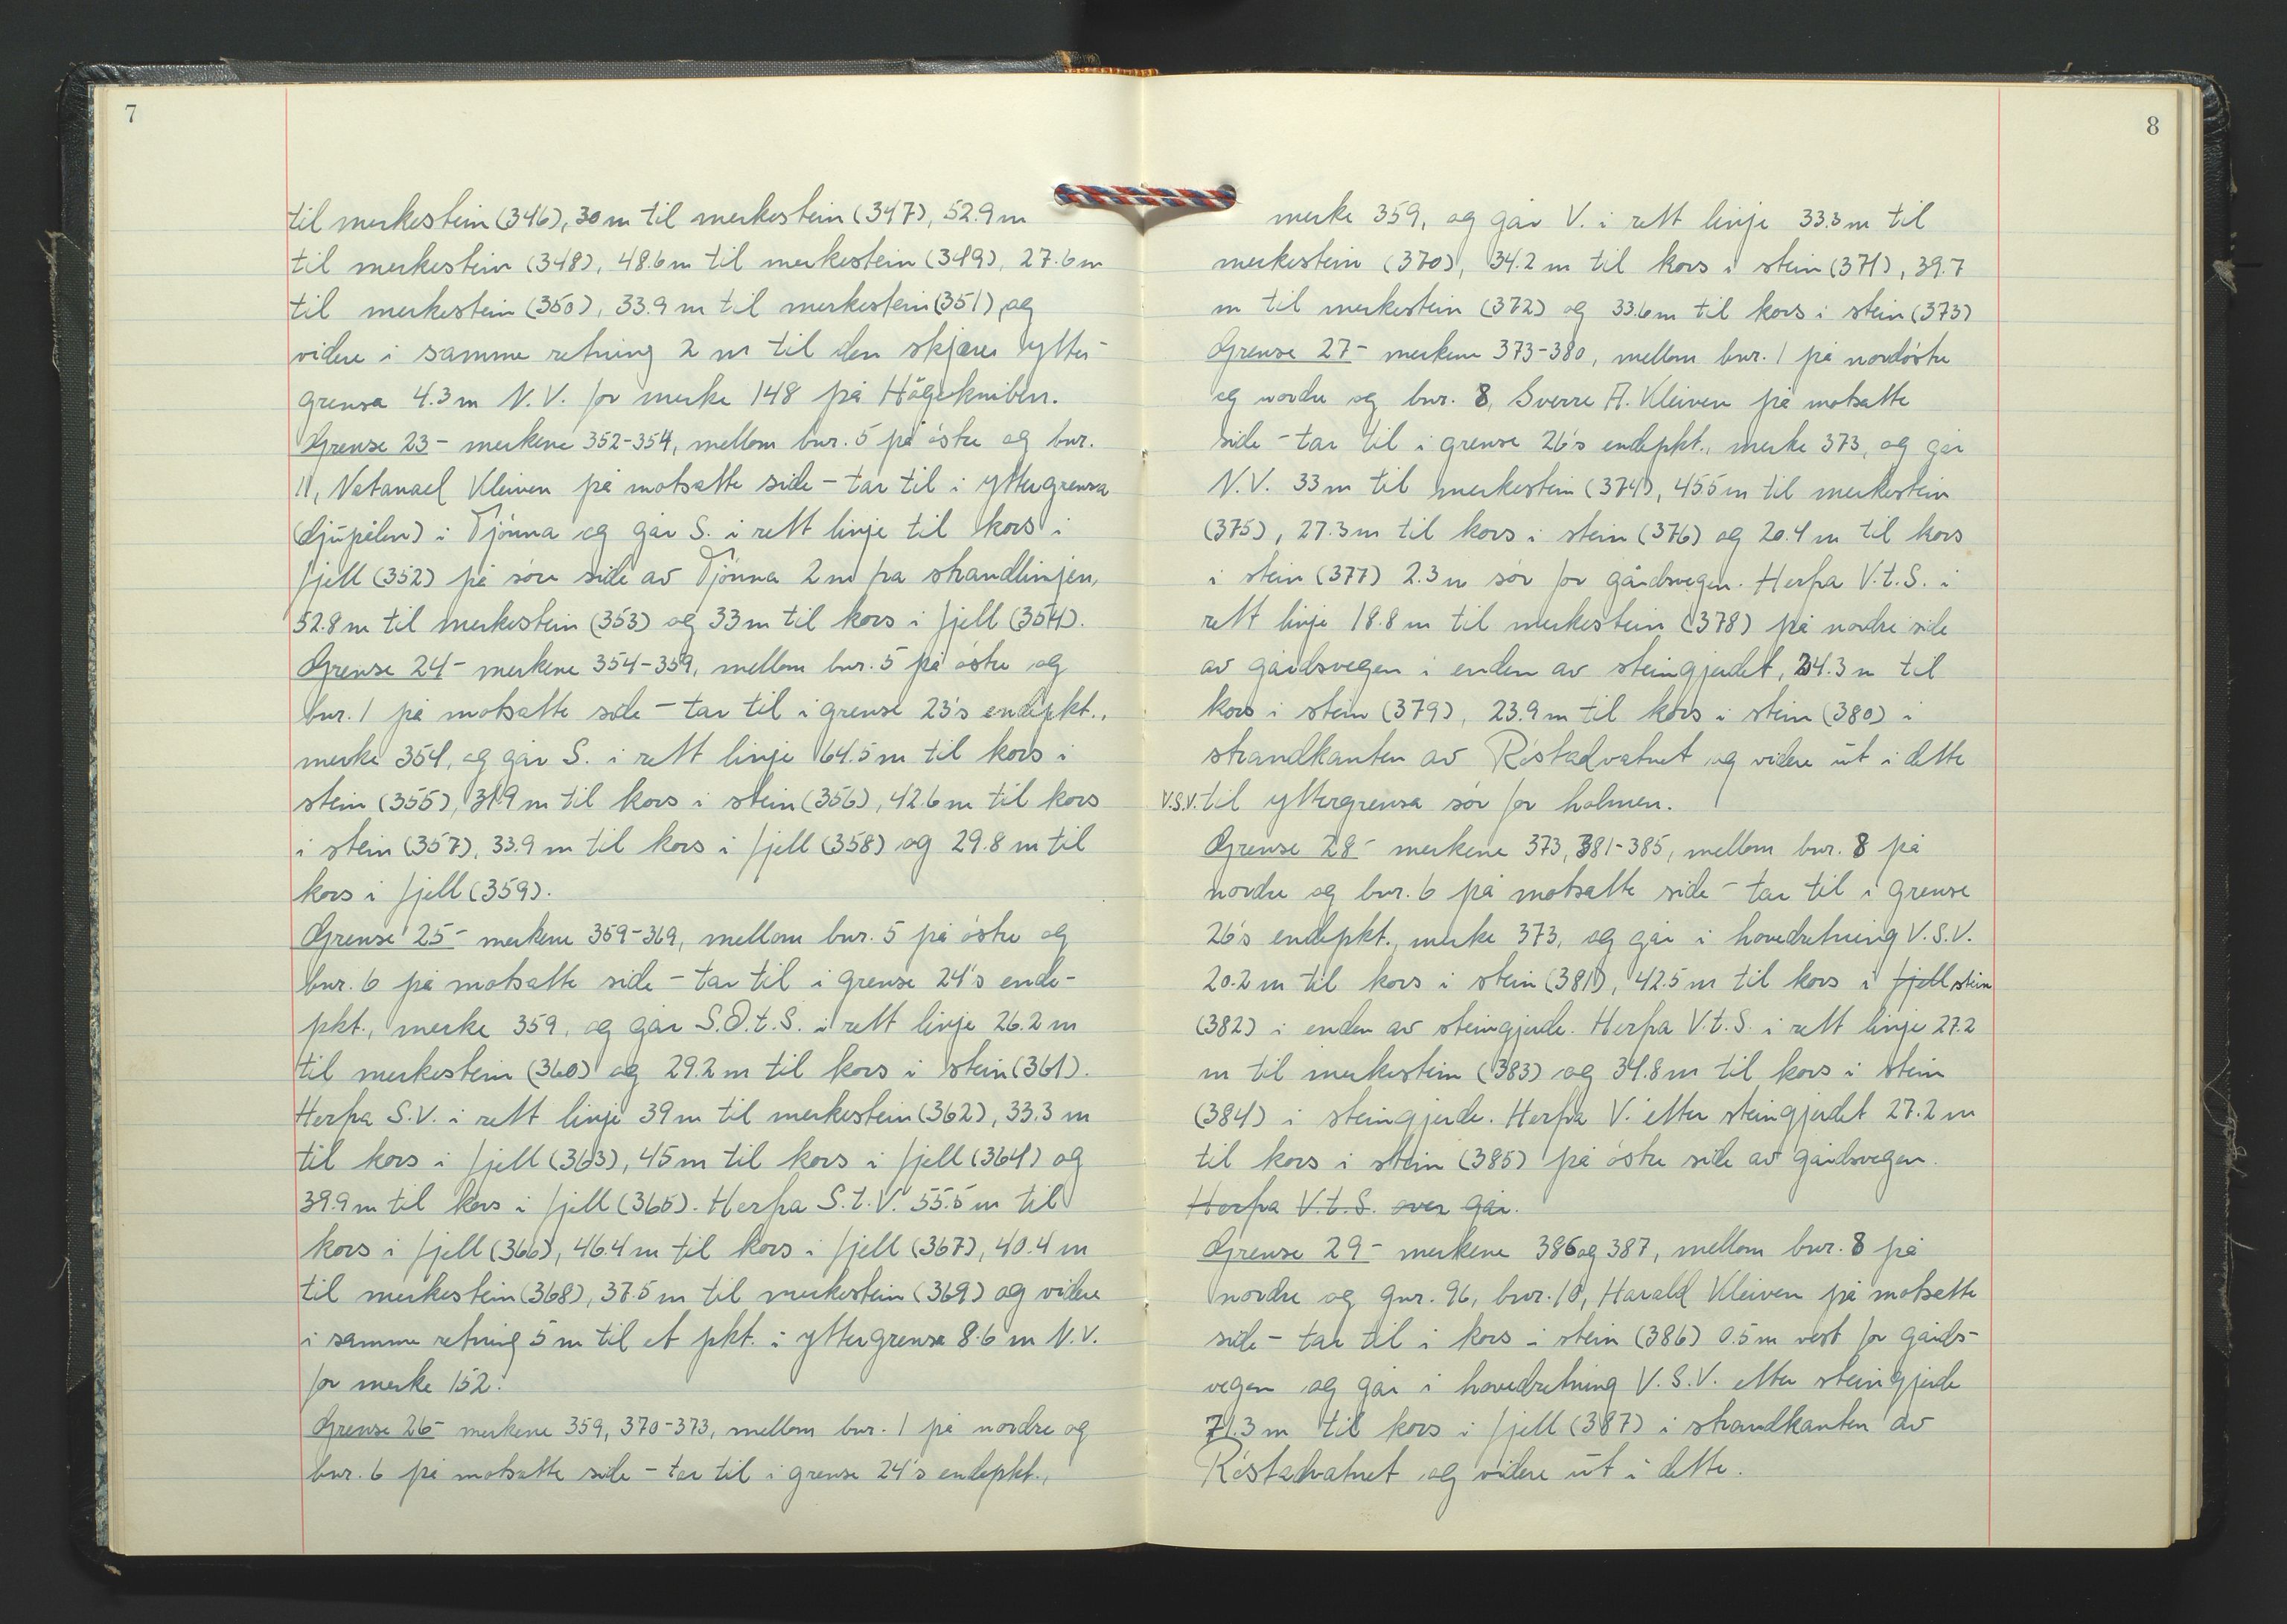 7
til merkestein (346), 30 m til merkestein (347), 52.9 m
til merkestein (348), 48.6 m til merkestein (349), 27.6 m
til merkestein (350), 33.9 m til merkestein (351) og
videre i samme retning 2 m til den skjærer ytter-
grensa 4.3 m N.V. for merke 148 på Högekniben.
Grense 23 - merkene 352-354, mellom bnr. 5 på östre og bnr.
11, Natanael Kleiven på motsatte side - tar til i yttergrensa
(djupålen) i Tjönna og går S. i rett linje til kors i
fjell (352) på söre side av Tjönna 2 m fra strandlinjen,
52.8 m til merkestein (353) og 33 m til kors i fjell (354).
Grense 24 - merkene 354-359, mellom bnr. 5 på östre og
bnr. 1 på motsatte side - tar til i grense 23's endepkt.,
merke 354, og går S. i rett linje 64.5 m til kors i
stein (355), 31.9 m til kors i stein (356), 42.6 m til kors
i stein (357), 33.9 m til kors i fjell (358) og 29.8 m til
kors i fjell (359).
Grense 25 - merkene 359-369, mellom bnr. 5 på östre og
bnr. 6 på motsatte side - tar til i grense 24's ende-
pkt., merke 359, og går S.Ø.t.S. i rett linje 26.2 m
til merkestein (360) og 29.2 m til kors i stein (361).
Herfra S.V. i rett linje 39 m til merkestein (362), 33.3 m
til kors i fjell (363), 45 m til kors i fjell (364) og
39.9 m til kors i fjell (365). Herfra S.t.V. 55.5 m til
kors i fjell (366), 46.4 m til kors i fjell (367), 40.4 m
til merkestein (368), 37.5 m til merkestein (369) og videre
i samme retning 5 m til et pkt. i yttergrensa 8.6 m N.V.
for merke 152.
Grense 26 - merkene 359, 370-373, mellom bnr. 1 på nordre og
bnr. 6 på motsatte side - tar til i grense 24's endepkt.,
8
merke 359, og går V. i rett linje 33.3 m til
merkestein (370), 34.2 m til kors i stein (371), 39.7
m til merkestein (372) og 33.6 m til kors i stein (373)
Grense 27 - merkene 373-380, mellom bnr. 1 på nordöstre
og nordre og bnr. 8, Sverre A. Kleiven på motsatte
side - tar til i grense 26's endepkt., merke 373, og går
N.V. 33 m til merkestein (374), 45.5 m til merkestein
(375), 27.3 m til kors i stein (376) og 20.4 m til kors
i stein (377) 2.3 m sör for gårdsvegen. Herfra V.t.S. i
rett linje 18.8 m til merkestein (378) på nordre side
av gårdsvegen i enden av steingjerdet, 24.3 m til
kors i stein (379), 23.9 m til kors i stein (380) i
strandkanten av Röstadvatnet og videre ut i dette
V.S.V. til yttergrensa sör for holmen.
Grense 28 - merkene 373, 381-385, mellom bnr. 8 på
nordre og bnr. 6 på motsatte side - tar til i grense
26's endepkt., merke 373, og går i hovedretning V.S.V.
20.2 m til kors i stein (381), 42.5 m til kors i fjell stein
(382) i enden av steingjerde. Herfra V.t.S. i rett linje 27.2
m til merkestein (383) og 34.8 m til kors i stein
(384) i steingjerde. Herfra V. etter steingjerdet 27.2 m
til kors i stein (385) på östre side av gårdsvegen.
Herfra V.t.S. over går.
Grense 29 - merkene 386 og 387, mellom bnr. 8 på
nordre og gnr. 96, bnr. 10, Harald Kleiven på motsatte
side - tar til i kors i stein (386) 0.5 m vest for gårds-
vegen og går i hovedretning V.S.V. etter steingjerde
71.3 m til kors i fjell (387) i strandkanten av
Röstadvatnet og videre ut i dette.